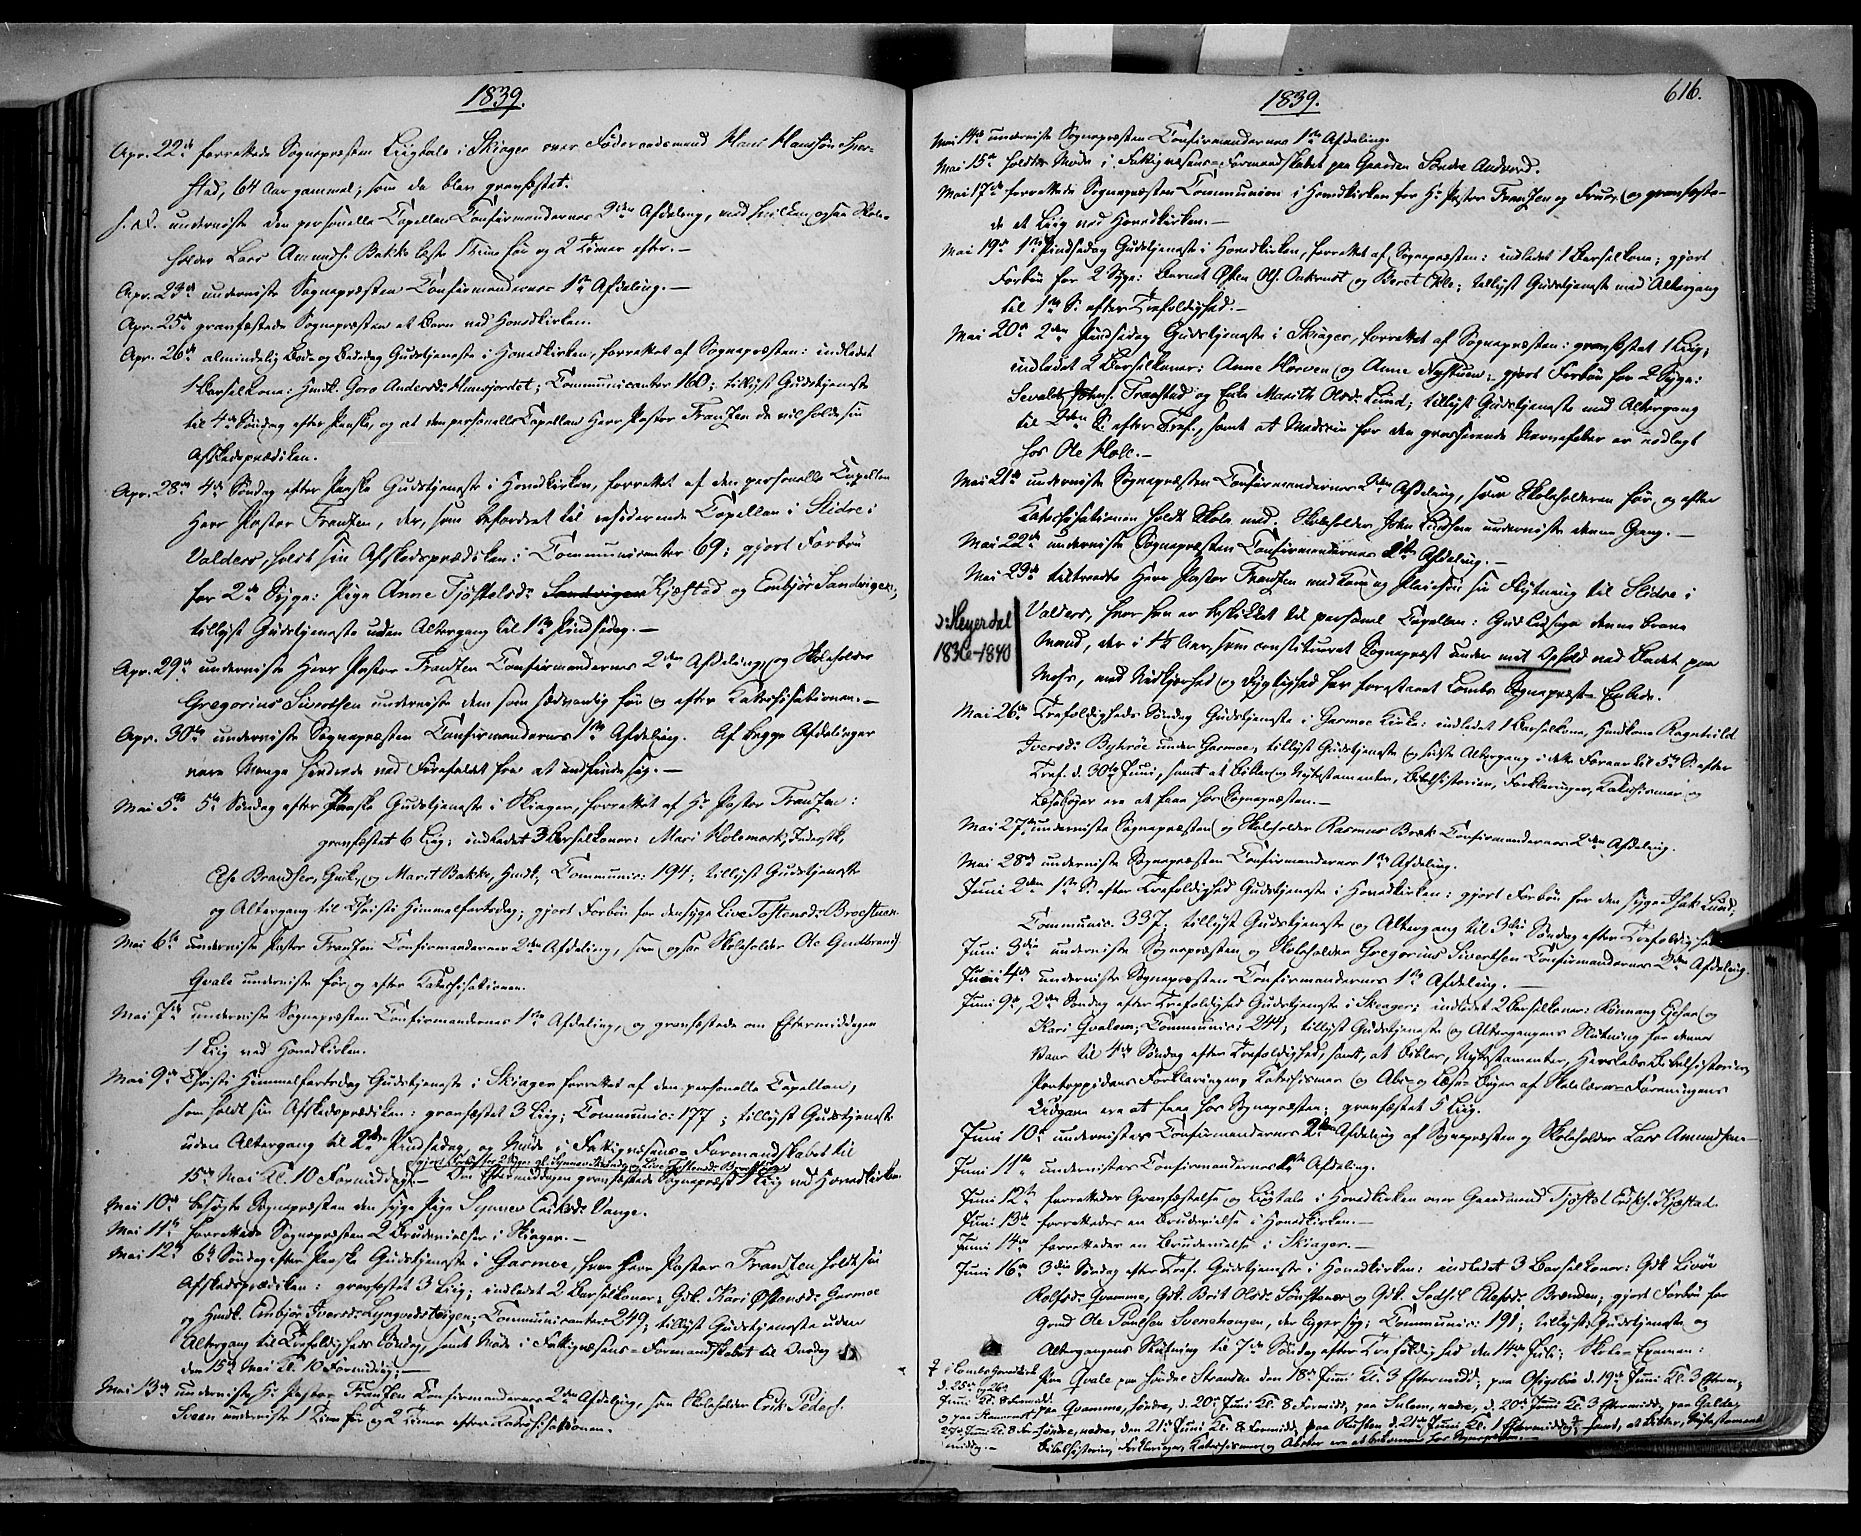 1839.
Apr. 22de forrettede Sognepræsten Liigtale i Skiager over Føderaadsmand Hans Hansøn Sper-
stad, 64 Aar gammel, som da blev gravfæstet.
S. D. underviste den personelle Capellan Confirmandernes 2den Afdeling, ved hvilken ogsaa Skole-
holder Lars Amunds. Bakke læste 1 Time før og 2 Timer efter.—
Apr. 23de underviste Sognepræsten Confirmandernes 1ste Afdeling.—
Apr. 25de gravfæstede Sognepræsten et Barn ved Hovedkirken.
Apr. 26de almindelig Bede og Bededag Gudstjeneste i Hovedkirken, forrettet af Sognepræsten: indledet
1 Barselkone: Hmdk. Goro Andersd. ; Communicanter 160; tillyst Gudstjeneste
til 4de Søndag efter Paaske, og at den personelle Capellan Herr Pastor Frantzen da vil holde sin
Afskedsprædiken.
Apr. 28de 4de Søndag efter Paaske Gudstjeneste i Hovedkirken, forrettet af den personelle Capellan
Herr Pastor Frantzen, der, som befordret til residerende Capellan i Slidre i
Valders, holdt sin Afskedsprædiken: Communicanter 69; gjort Forbøn
for 2de Syge: Pige Anne Tjøstelsd. Sandvigen Kjæstad og Embjør Sandvigen;
tillyst Gudstjeneste uden Altergang til 1ste Pindsedag.—
Apr. 29de underviste Herr Pastor Frantzen Confirmandernes 2den Afdeling, og Skoleholder
Gregorius Sivertsen underviste dem som sædvanlig før og efter Katechisationen.—
Apr. 30te underviste Sognepræsten Confirmandernes 1ste Afdeling. Af begge Afdelinger
vare Mange hindrede ved Føreføldet fra at indfinde sig.—
Mai 5te 5te Søndag efter Paaske Gudstjeneste i Skiager, forrettet af Hr. Pastor Frantzen:
gravfæstet 6 Liig; indledet 3 Barselkoner: Mari Holemork, Inderstk,
Else Brandser, Gmk, og Marit Bakke, Hmdk; Communic: 194; tillyst Gudstjeneste
og Altergang til Christi Himmelfartsdag; gjort Forbøn for den syge Live Tostensd. Broestuen.
Mai 6te underviste Pastor Frantzen Confirmandernes 2den Afdeling, som ogsaa Skoleholder Ole Gudbrands.
Qvale underviste før og efter Katechisationen.
Mai 7de underviste Sognepræsten Confirmandernes 1ste Afdeling, og gravfæstede om Eftermiddagen
1 Liig ved Hovedkirken.
Mai 9de Christi Himmelfartsdag Gudstjeneste i Skiager forrettet af den personelle Capellan,
som holdt sin Afskedsprædiken: gravfæstet 3 Liig; Communic: 177; tillyst Gudstjeneste
uden Altergang til 2den Pindsedag, og Møde i Fattigvæsens-Formandskabet til
15de Mai Kl. 10 Formiddag.— Om Eftermiddagen gravfæstede Sognepræst 1 Liig ved Hovedkirken
Mai 10de besøgte Sognepræsten den syge Pige Synnev Eriksd. Vange.
Mai 11te forrettede Sognepræsten 2 Brudevielser i Skiager.—
Mai 12te 6te Søndag efter Paaske Gudstjeneste i Garmoe, hvor Herr Pastor Frantzen holdt sin
Afskedsprædiken: gravfæstet 3 Liig; indledet 2 Barselkoner: Gdk. Kari Østensd. Garmoe
og Hmdk. Embjør Iversd. ; Communicanter 249; tillyst Gudstjeneste uden
Altergang til Trefoldigheds Søndag, samt Møde i Fattigvæsens-Formandskabet til Onsdag
den 15de Mai Kl. 10 Formiddag.—
Mai 13de underviste Hr. Pastor Frantzen Confirmandernes 2den Afdeling, som Skoleholder Erik Peders.
Sveen underviste 1 Time før og 2 Timer efter Katechisationen.
1839.
616.
Mai 14de underviste Sognepræsten Confirmandernes 1ste Afdeling.
Mai 15de holdtes Møde i Fattigvæsens-Formandskabet paa Gaarden Søndre Andvord.
Mai 17de forrettede Sognepræsten Communion i Hovedkirken for Hr. Pastor Frantzen og Frue, og gravfæste-
de et Liig ved Hovedkirken.—
Mai 19de 1ste Pindsedag Gudstjeneste i Hovedkirken, forrettet af Sognepræsten: indledet 1 Barselkone; gjort
Forbøn for 2 Syge: Barnet Østen Ols. Aukrust og Beret Ekle; tillyst Gudstjeneste med Altergang
til 1ste S. efter Trefoldighed.—
Mai 20de 2den Pindsedag Gudstjeneste i Skiager, forrettet af Sognepræsten: gravfæstet 1 Liig;
indledet 2 Barselkoner: Anne Horven og Anne Nystuen; gjort Forbøn for 2 Syge:
Sevald Johns. Træstad og Enke Marith Olsd. Lund; tillyst Gudstjeneste med Altergang
til 2den S. efter Tref., samt at Medicin for den grasserende Nervefeber er nedlagt
hos Ole Hole.—
Mai 21de underviste Sognepræsten Confirmandernes 2den Afdeling, som Skoleholderen før og efter
Katechisationen holdt Skole med. Skoleholder John underviste denne Gang.—
Mai 22de underviste Sognepræsten Confirmandernes 1ste Afdeling.—
Mai 23de tiltraadte Herr Pastor Frantzen med Kone og Pleiesøn sin Flytning til Slidre i
Valders, hvor han er beskikket til personel Capellan: Gud ledsage denne brave
Mand, der i 1½ Aar, som constitueret Sognepræst under mit Ophold ved Badet paa
Moss, med Nidkjærhed og Dygtighed har forestaaet Lombs Sognepræst-Embede.
d: Heyerdal
1836-1840
Mai 26de Trefoldigheds Søndag Gudstjeneste i Garmoe Kirke: indledet 1 Barselkone, Hmdkone Ragnhild
Iversd. Byhrøe under Garmoe; tillyst Gudstjeneste og sidste Altergang i dette Foraar til 5te S. efter
Tref. d. 30te Juni, samt at Bibler og Nytestamenter, Bibelhistorier, Forklaringer, Katechismer og
Læsebøger ere at faae hos Sognepræsten.—
Mai 27de underviste Sognepræsten og Skoleholder Rasmus Bræk Confirmandernes 2den Afdeling.
Mai 28de underviste Sognepræsten Confirmandernes 1ste Afdeling.
Juni 2den 1ste S. efter Trefoldighed Gudstjeneste i Hovedkirken: gjort Forbøn for den syge Isak Lund;
Communic. 337; tillyst Gudstjeneste og Altergang til 3die Søndag efter Trefoldighed.
Juni 3die underviste Sognepræsten og Skoleholder Gregorius Sivertsen Confirmandernes 2den Afdeling.
Juni 4de underviste Sognepræsten Confirmandernes 1ste Afdeling.—
Juni 9de, 2den Søndag efter Trefoldighed Gudstjeneste i Skiager; indledet 2 Barselkoner: Rønnaug og
Kari Qvalem; Communic: 244; tillyst Gudstjeneste og Altergangens Slutning for denne
Vaar til 4de Søndag efter Trefoldighed, samt, at Bibler, Nytestamenter, Herslebs Bibelhistorier,
Pontoppidans Forklaringer, Katechismer og Abc og Læse-Bøger af Skolelærer-Foreningens
Udgave ere at faae hos Sognepræsten; gravfæstet 5 Liig.
Juni 10de undervistes Confirmandernes 2den Afdeling af Sognepræsten og Skoleholder Lars Amundsen—
Juni 11te undervistes Confirmandernes 1ste Afdeling.
Juni 12te forrettedes Gravfæstelse og Liigtale i Hovedkirken over Gaardmand Tjøstel Eriks. Kjæstad.
Juni 13de forrettedes en Brudevielse i Hovedkirken.—
Juni 14de forrettedes en Brudevielse i Skiager.—
Juni 16de 3die Søndag efter Tref. Gudstjeneste i Hovedkirken: indledet 3 Barselkoner: Gdk Live
Rolfsd. Qvamme, Gdk. Brit Olsd. Sønstnæs og Gdk. Sedsel Brenden; gjort Forbøn for
Gmd Ole Paulsen Svensthaugen, der ligger syg; Communic: 191; tillyst Gudstjeneste og
Altergangens Slutning til 7de Søndag efter Trefoldighed den 14de Juli; Skole-Examen:
Paa Qvale paa Søndre Stranden den 18de Juni Kl. 3 Eftermidd; paa d. 19de Juni Kl. 3 Efterm;
paa Qvamme, søndre, d. 20de Juni Kl. 8 Formidd, paa Sulem, nedre, d. 20de Juni Kl. 3 Eftermidd, paa Galde,
søndre, nedre, den 21de Juni Kl. 8 Formidd, paa Rusten d. 21de Juni Kl. 1 Eftermidd; samt, at Bibler, Nytestamenter,
Bibelhistorier, Forklaringer, Katechismer og Abc'er ere at bekomme hos Sognepræsten.—